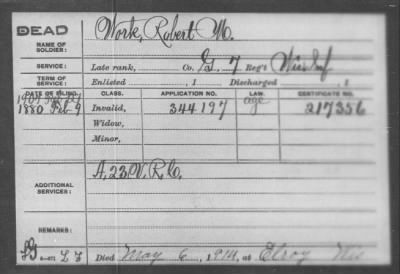 DEAD
NAME OF SOLDIER: Work, Robert M.
SERVICE: Late rank, Co. G. 7 Reg't Wis Inf
TERM OF SERVICE: Enlisted , 1 Discharged , 1
DATE OF FILING. CLASS. APPLICATION NO. LAW. CERTIFICATE NO.
1907
1880 Feb 9 Invalid, 344197 age 217356
Widow,
Minor,
ADDITIONAL SERVICES: A, 23, V. R. C.
REMARKS:
Died May 6, 1914, at Elroy Wis